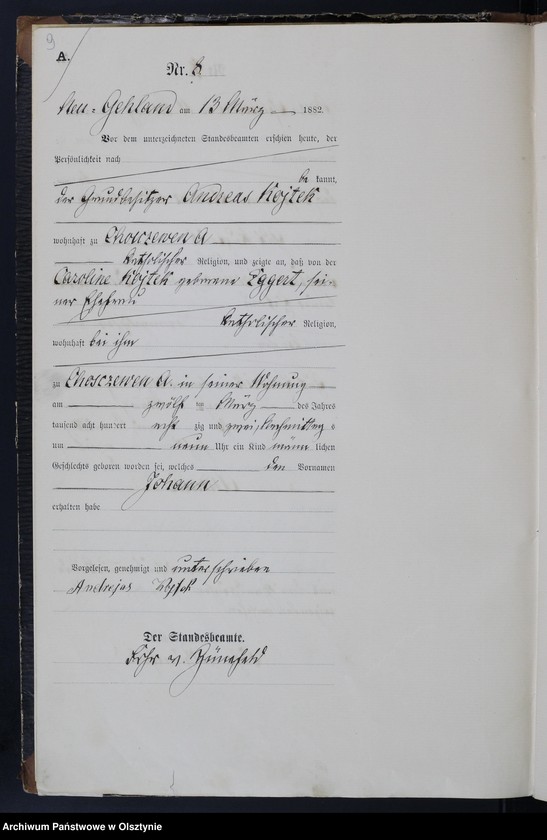 9
A.
Nr. 8
Neu-Gehland am 13 März 1882.
Vor dem unterzeichneten Standesbeamten erschien heute, der
Persönlichkeit nach
be kannt,
der Grundbesitzer Andreas Kojtek
wohnhaft zu Choszewen A
katholischer Religion, und zeigte an, daß von der
Caroline Kojtek geborene Eggert, sei-
ner Ehefrau
katholischer Religion,
wohnhaft bei ihm
zu Choszewen A. in seiner Wohnung
am zwölf ten März des Jahres
tausend acht hundert acht zig und zwei, Nachmittag s
um neun Uhr ein Kind männ lichen
Geschlechts geboren worden sei, welches den Vornamen
Johann
erhalten habe
Vorgelesen, genehmigt und unterschrieben
Andrejas Kojtek
Der Standesbeamte.
v.
Archiwum Państwowe w Olsztynie